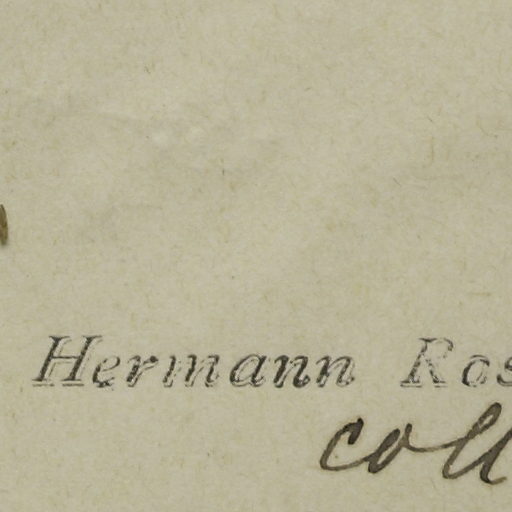 Hermann Ros
coll